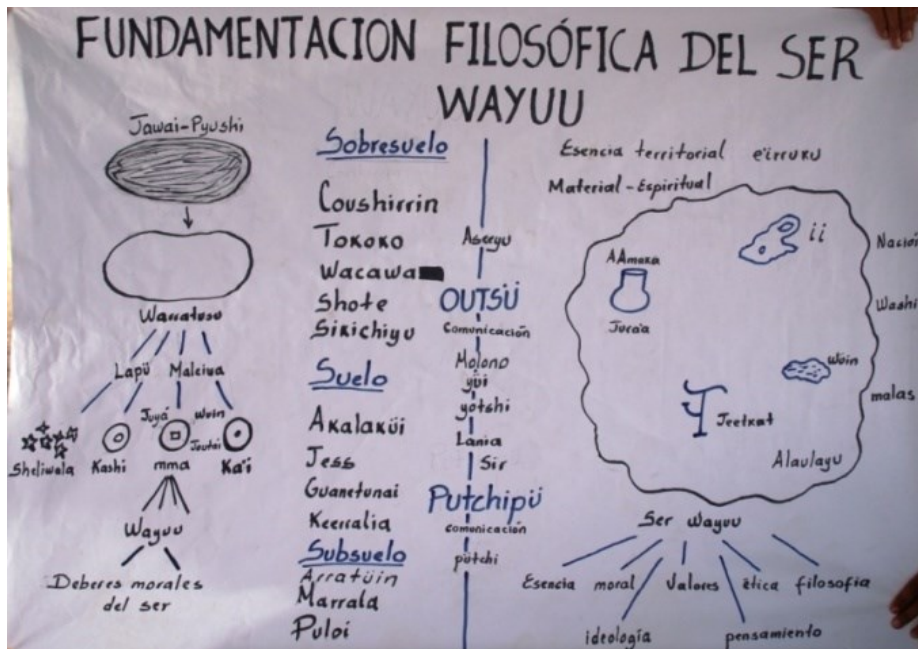 FUNDAMENTACION FILOSÓFICA DEL SER
WAYUU
Jawai-Pyushi
Warratusu
Lapü Maleiwa
Juyá Wuin
Joutai
Sheliwala Kashi mma Ka'i
Wayuu
Deberes morales
del ser
Sobresuelo
Coushirrin
Tokoko
Wacawa
Shote
Sirichiyu
Suelo
Akalaküi
Jess
Guanetunai
Keerralia
Subsuelo
Arratüin
Marrala
Puloi
Aseyyu
OUTSÜ
Comunicación
Molono
yüi
yotshi
Lania
Sir
PUTCHIPÜ
comunicación
pütchi
Esencia territorial e'irruku
Material-Espiritual
AAmaka
Juraa
ii
Wuin
Jeetkat
Alaulayu
Nación
Washi
malas
Ser Wayuu
Esencia moral Valores ética filosofia
ideología pensamiento